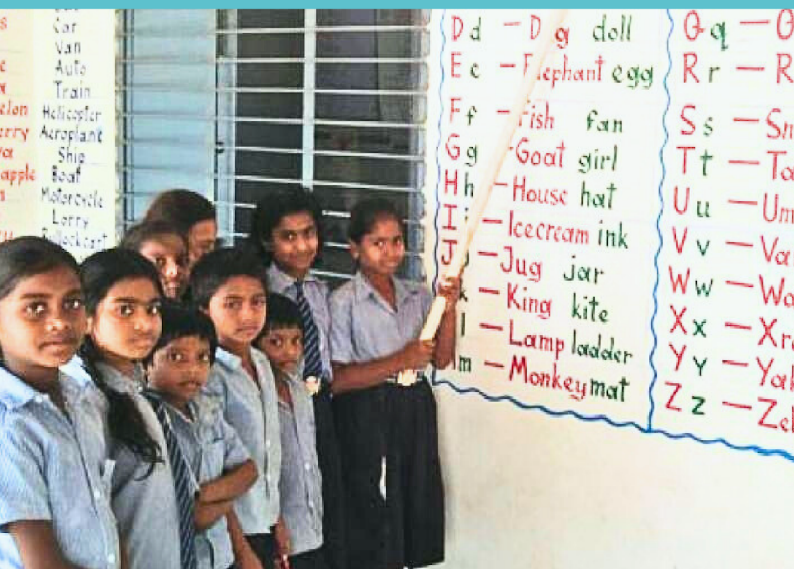 Car
Van
Auto
Train
Helicopter
Aeroplane
Ship
Boat
Motorcycle
Lorry
Bullockcart
apple
D d — D g doll
E e — Elephant egg
F f — Fish fan
G g — Goat girl
H h — House hat
I i — Icecream ink
J — Jug jar
— King kite
l — Lamp ladder
m — Monkey mat
Q q —
R r — R
S s — Sn
T t — Ta
U u — Um
V v — Va
W w — Wa
X x — Xra
Y y — Yak
Z z — Zeb